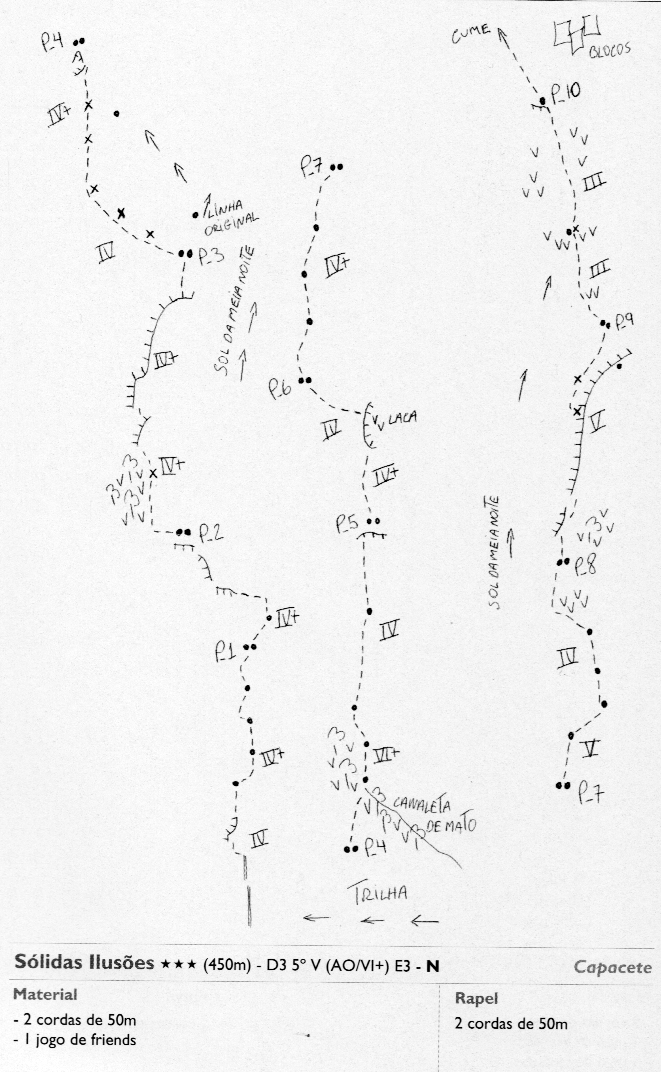 P_4
IV+
LINHA
ORIGINAL
IV
P_3
SOL DA MEIA NOITE
IV+
IV+
P_2
IV+
P_1
IV+
IV
P_7
IV+
P_6
IV
LACA
IV+
P_5
IV
VI+
CANALETA
DE MATO
P_4
TRILHA
CUME
BLOCOS
P_10
III
III
P_9
V
SOL DA MEIA NOITE
P_8
IV
V
P_7
Sólidas Ilusões ★★★ (450m) - D3 5º V (AO/VI+) E3 - N
Capacete
Material
- 2 cordas de 50m
- 1 jogo de friends
Rapel
2 cordas de 50m